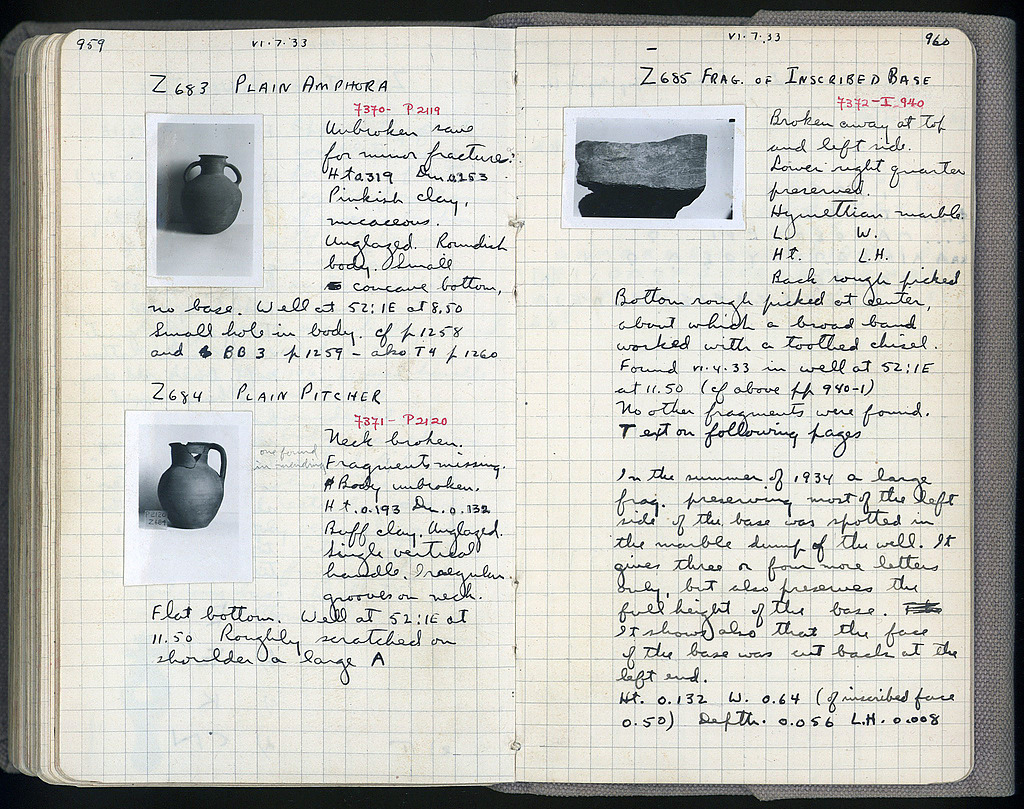 959
VI·7·33
Z 683 PLAIN AMPHORA
7370 - P 2119
Unbroken save
for minor fractures.
Ht 0.319 Dm 0.253
Pinkish clay,
micaceous.
Unglazed. Roundish
body. Small
concave bottom,
no base. Well at 52:1E at 8.50
Small hole in body. cf p 1258
and BB 3 p 1259 - also T4 p 1260
Z 684 PLAIN PITCHER
7371 - P 2120
Neck broken.
one found
in mending
Fragments missing.
Body unbroken.
Ht. 0.193 Dm. 0.132
Buff clay. Unglazed.
Single vertical
handle. Irregular
grooves on neck.
Flat bottom. Well at 52:1E at
11.50 Roughly scratched on
shoulder a large A
960
VI·7·33
Z 685 FRAG. OF INSCRIBED BASE
7372 - I 940
Broken away at top
and left side.
Lower right quarter
preserved.
Hymettian marble.
L. W.
Ht. L.H.
Back rough picked
Bottom rough picked at center,
about which a broad band
worked with a toothed chisel.
Found VI·4·33 in well at 52:1E
at 11.50 (cf above pp 940-1)
No other fragments were found.
Text on following pages
In the summer of 1934 a large
frag. preserving most of the left
side of the base was spotted in
the marble dump of the well. It
gives three or four more letters
only, but also preserves the
full height of the base.
It shows also that the face
of the base was cut back at the
left end.
Ht. 0.132 W. 0.64 (of inscribed face
0.50) Depth. 0.056 L.H. 0.008